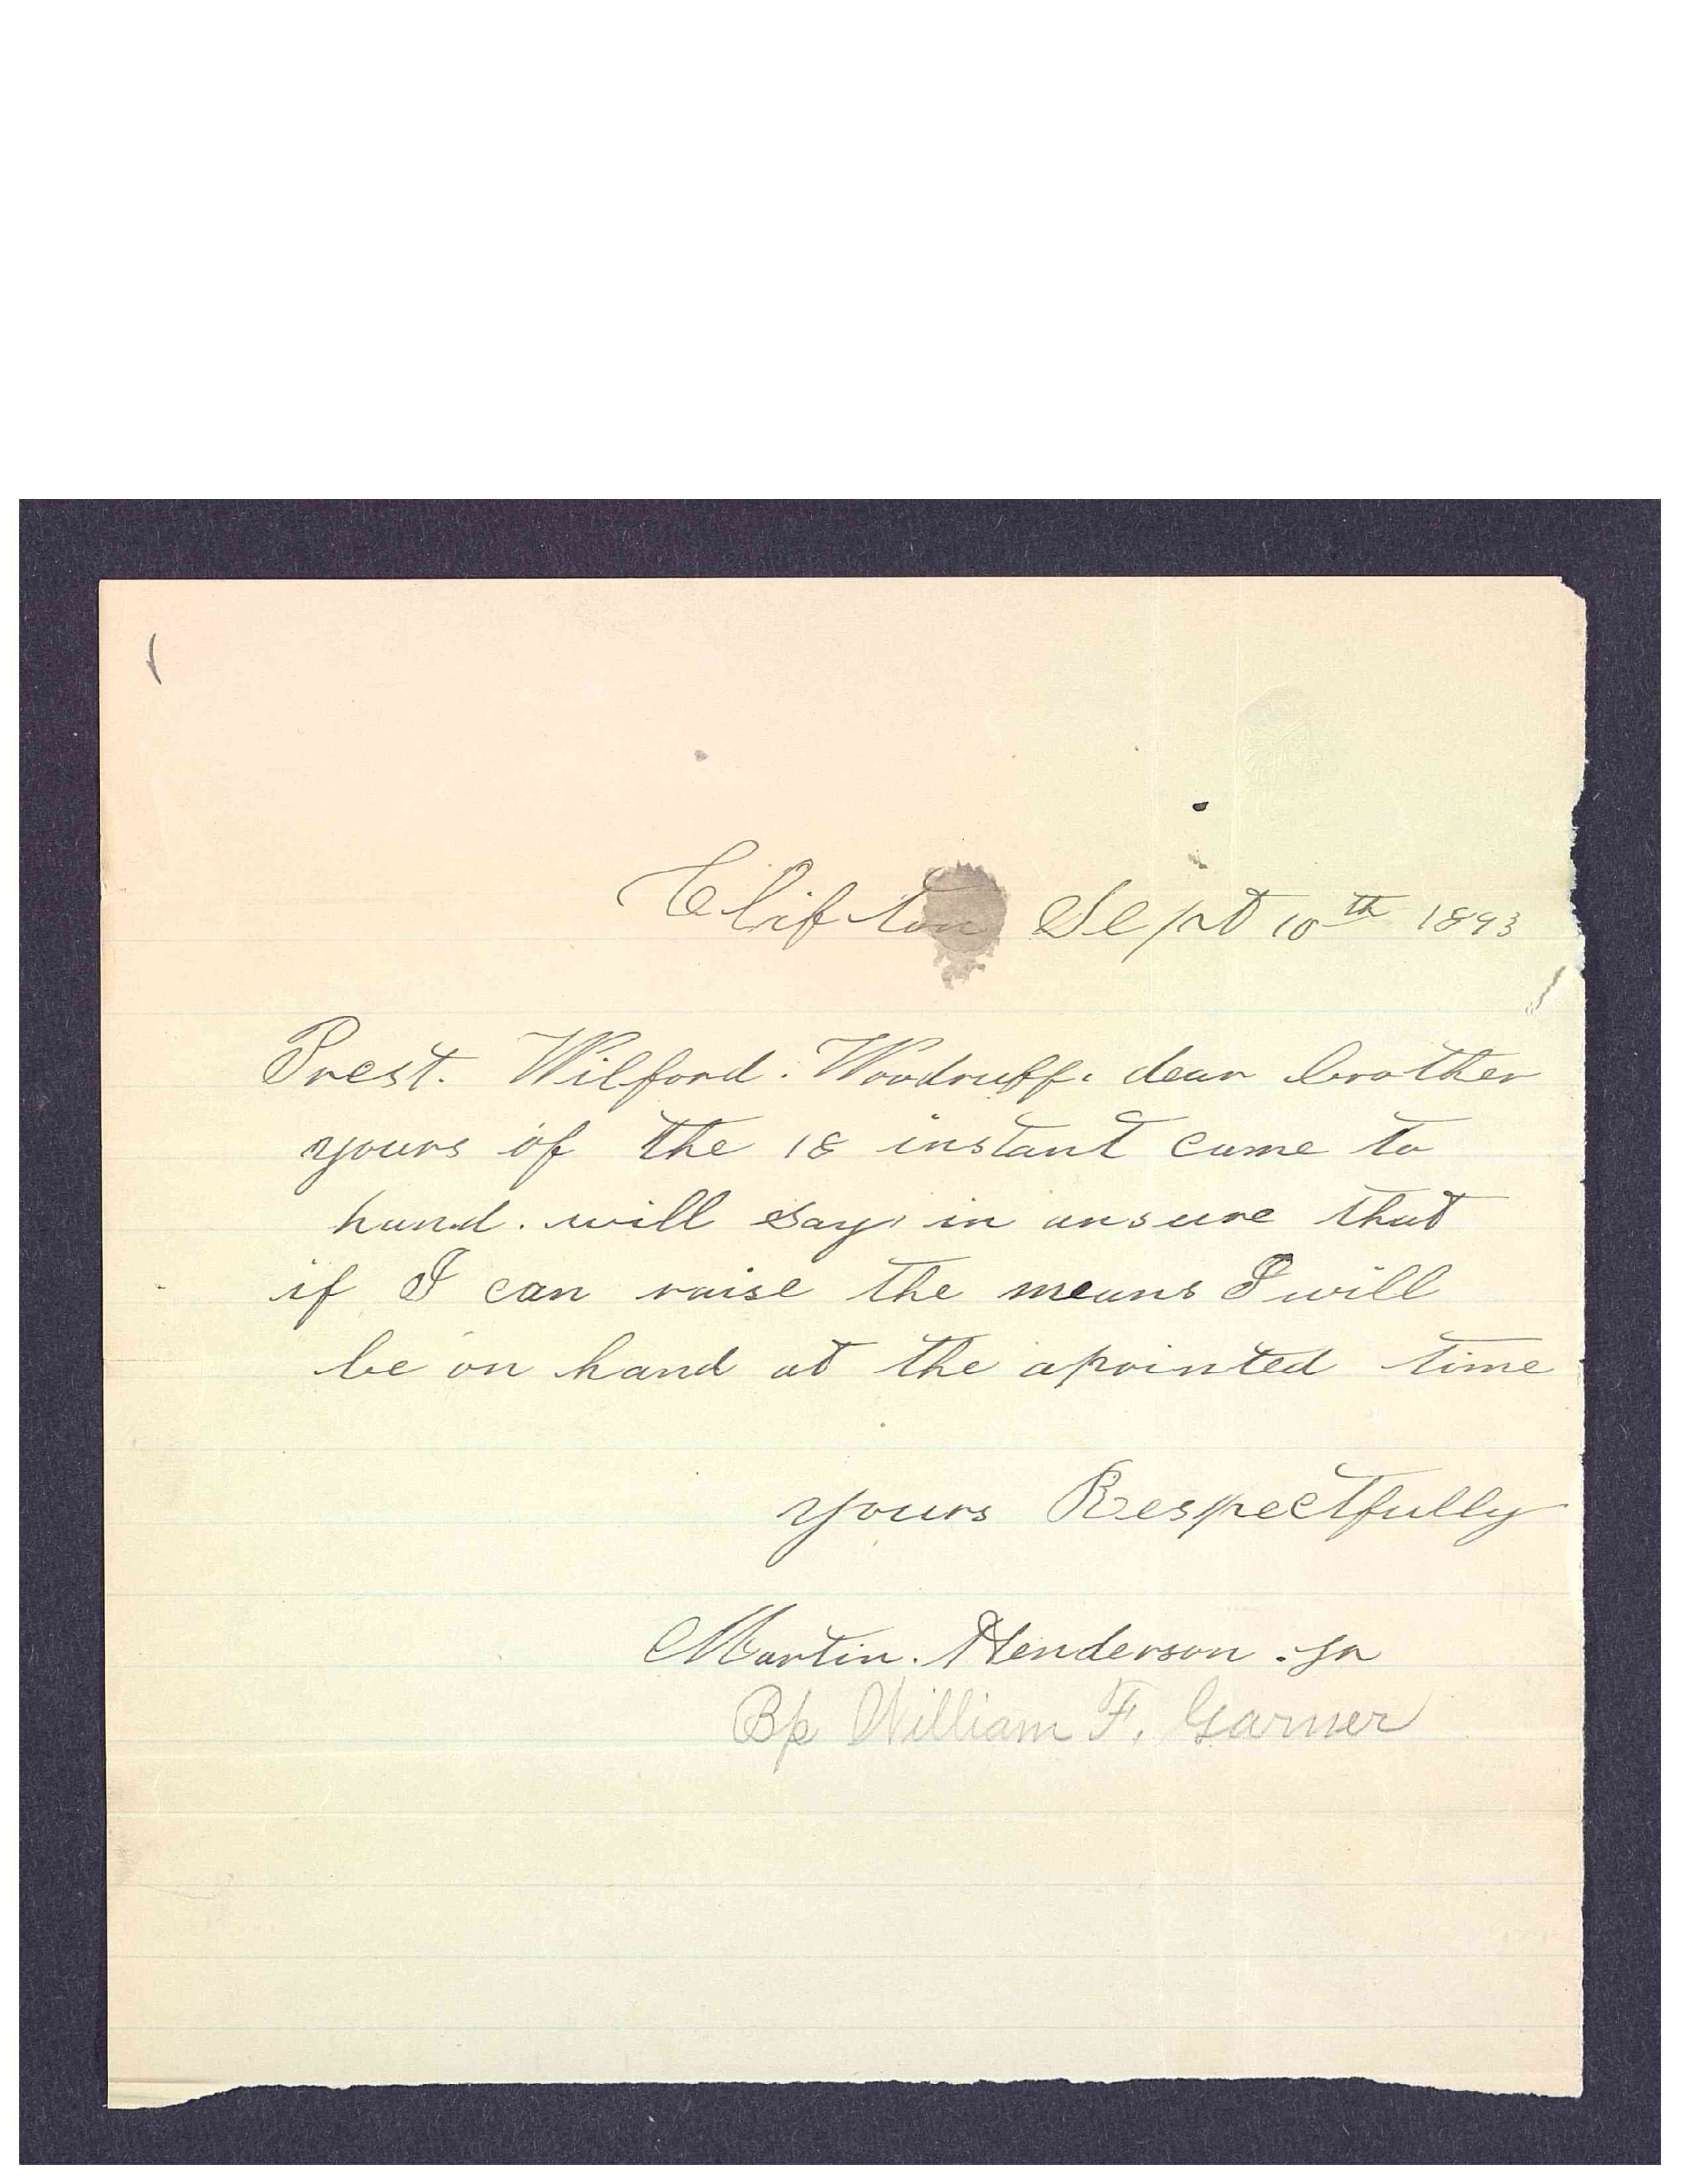 Clifton Sept 10th 1893
Prest. Wilford. Woodruff. dear brother
yours of the 18 instant came to
hand. will say in ansure that
if I can raise the means I will
be on hand at the apointed time
yours Respectfully
Martin. Henderson. Jr
Bp William F. Garner